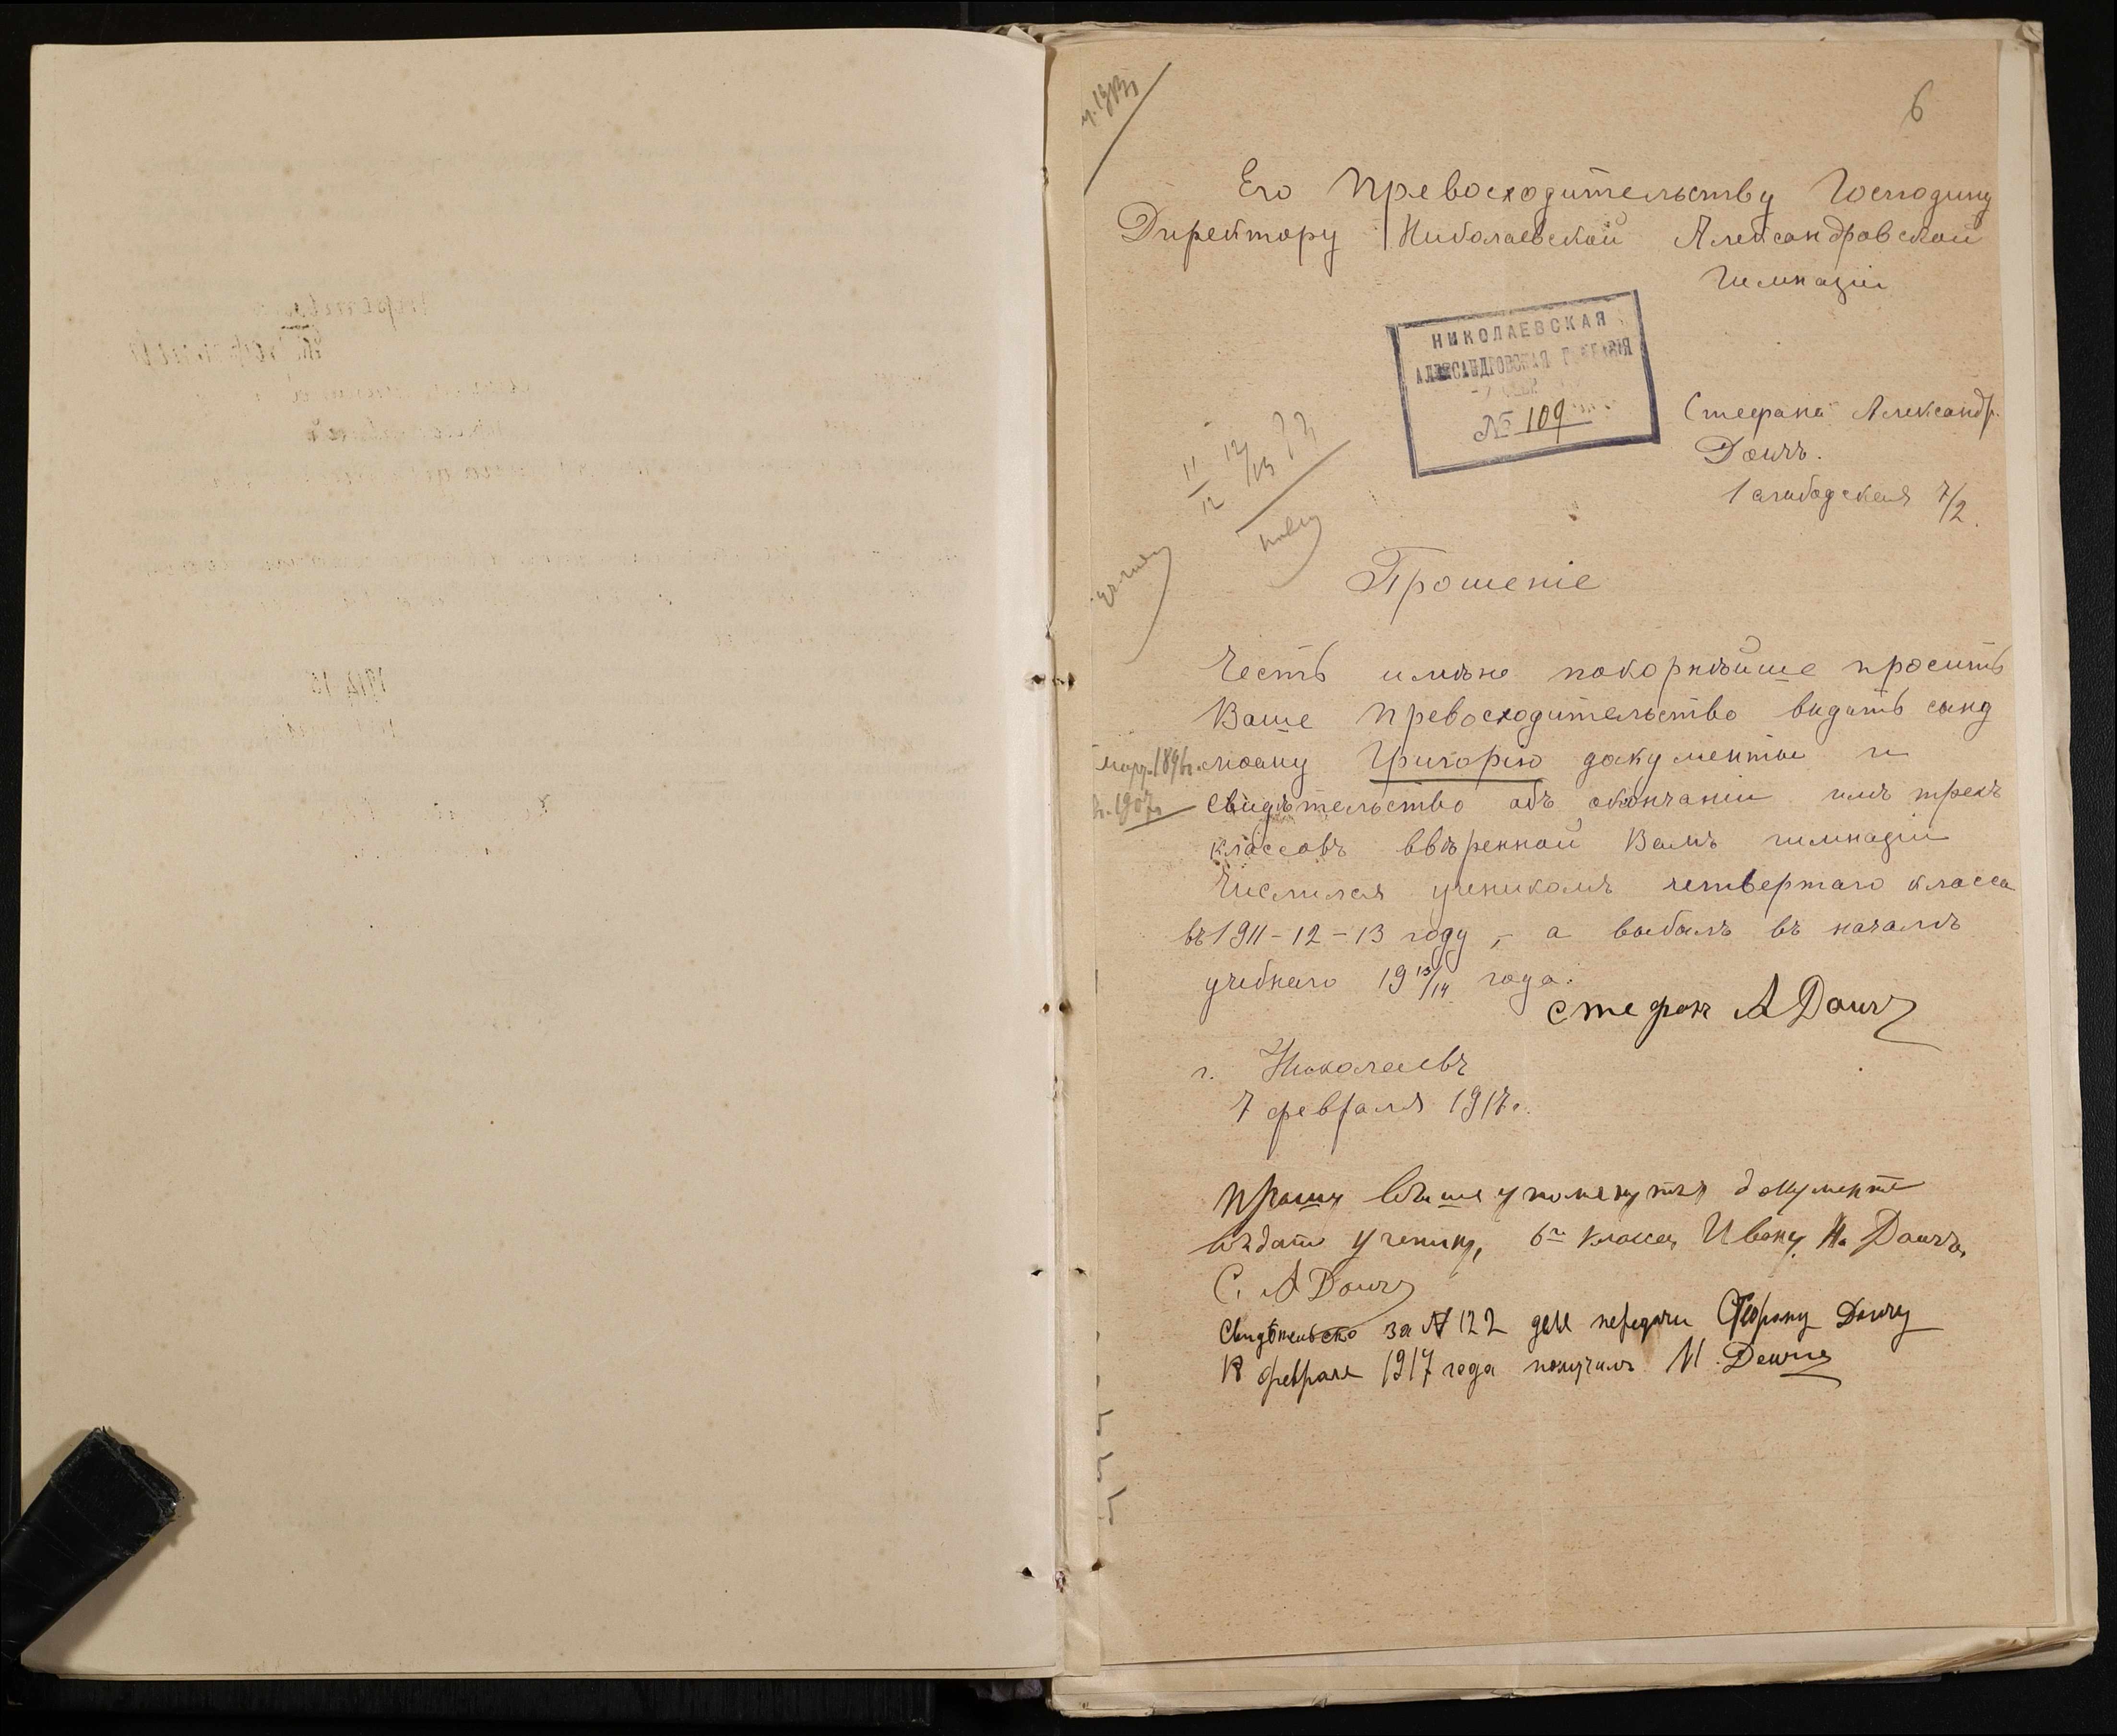 6
Его Превосходительству Господину
Директору Николаевской Александровской
Гимназіи
НИКОЛАЕВСКАЯ
АЛЕКСАНДРОВСКАЯ ГИМНАЗІЯ
№ 109
Стефана Александр.
Доичъ.
7/2.
Прошеніе
Честь имѣю покорнѣйше просить
Ваше Превосходительство видать сыну
моему Григорію документы и
свидѣтельство объ окончаніи имъ трехъ
классовъ ввѣренной Вамъ гимназіи
Числился ученикомъ четвертаго класса
въ 1911-12-13 году, - а выбылъ въ началѣ
учебнаго 19 13/14 года.
Стефан А Доичъ
г. Николаевъ
7 февраля 1917 г.
Прошу выше упомянутыя документы
выдать ученику, 6го класса, Ивану Доичъ,
С. А Доичъ
Свидѣтельство за № 122 для передачи Стефану Доичу
18 февраля 1917 года получилъ И. Доичъ